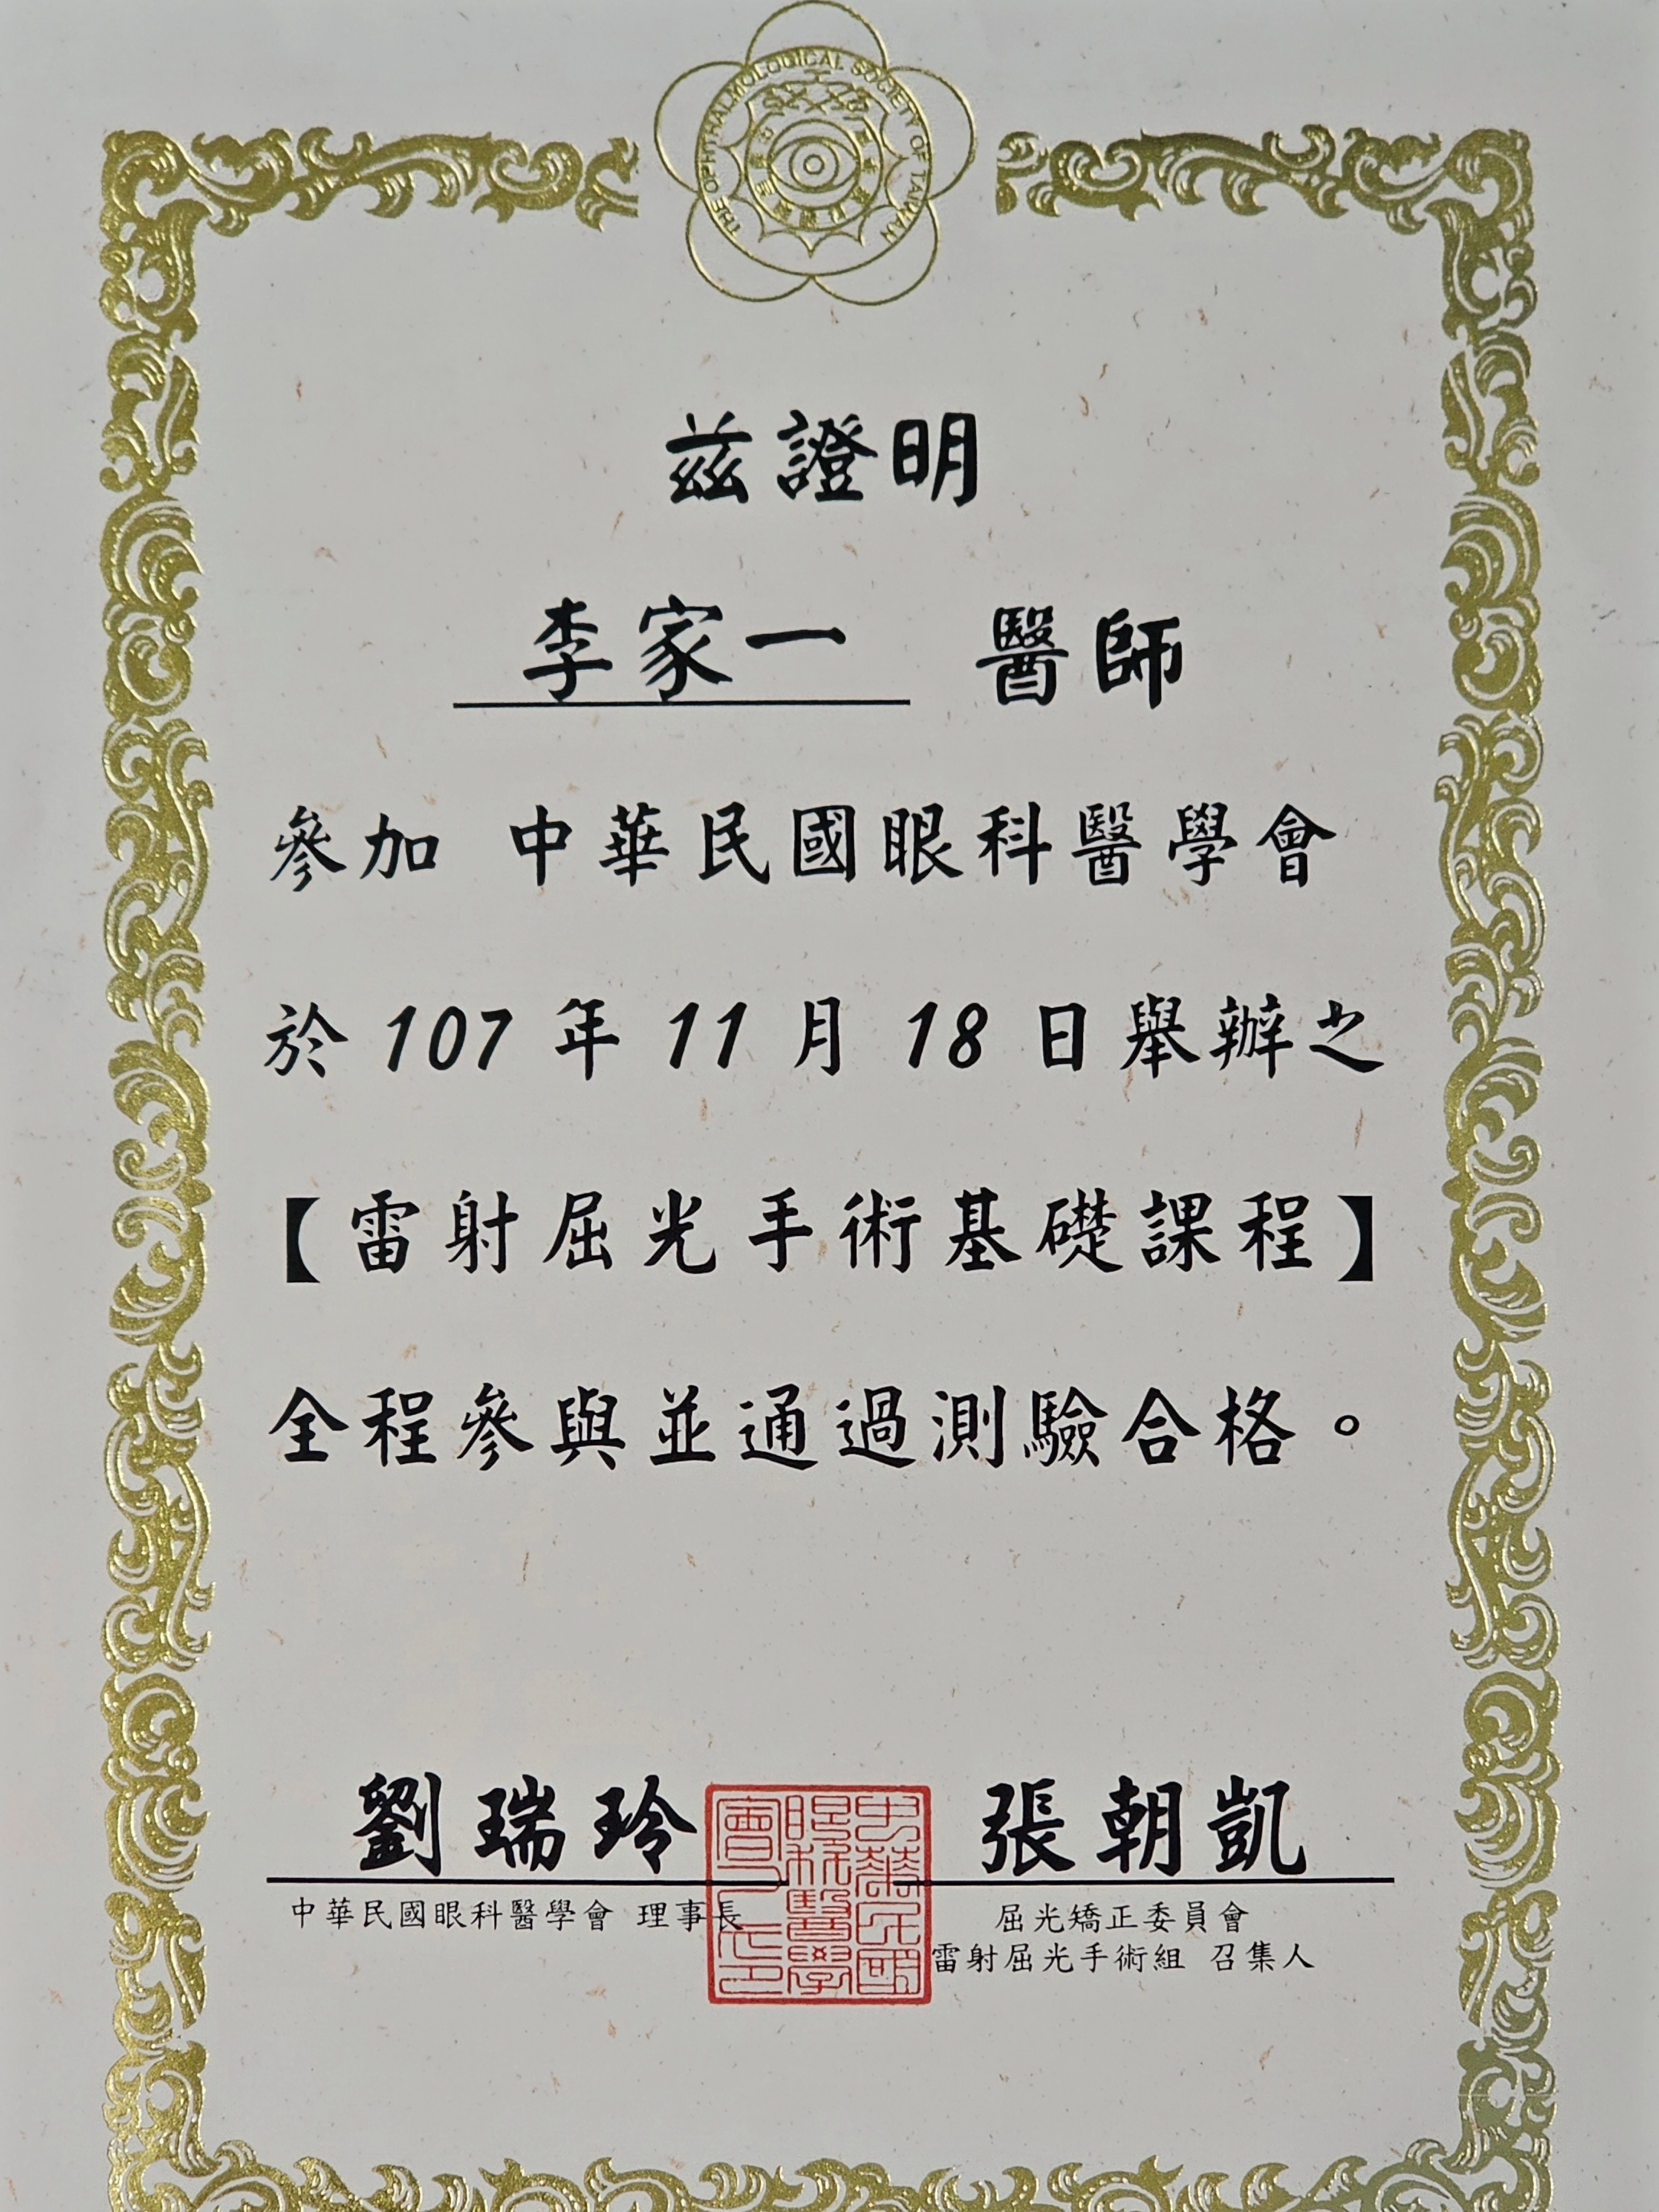 THE OPHTHALMOLOGICAL SOCIETY OF TAIWAN
茲證明
李家一 醫師
參加 中華民國眼科醫學會
於 107 年 11 月 18 日舉辦之
【雷射屈光手術基礎課程】
全程參與並通過測驗合格。
劉瑞玲
中華民國眼科醫學會 理事長
張朝凱
屈光矯正委員會
雷射屈光手術組 召集人
中華民國
眼科醫學
會之印